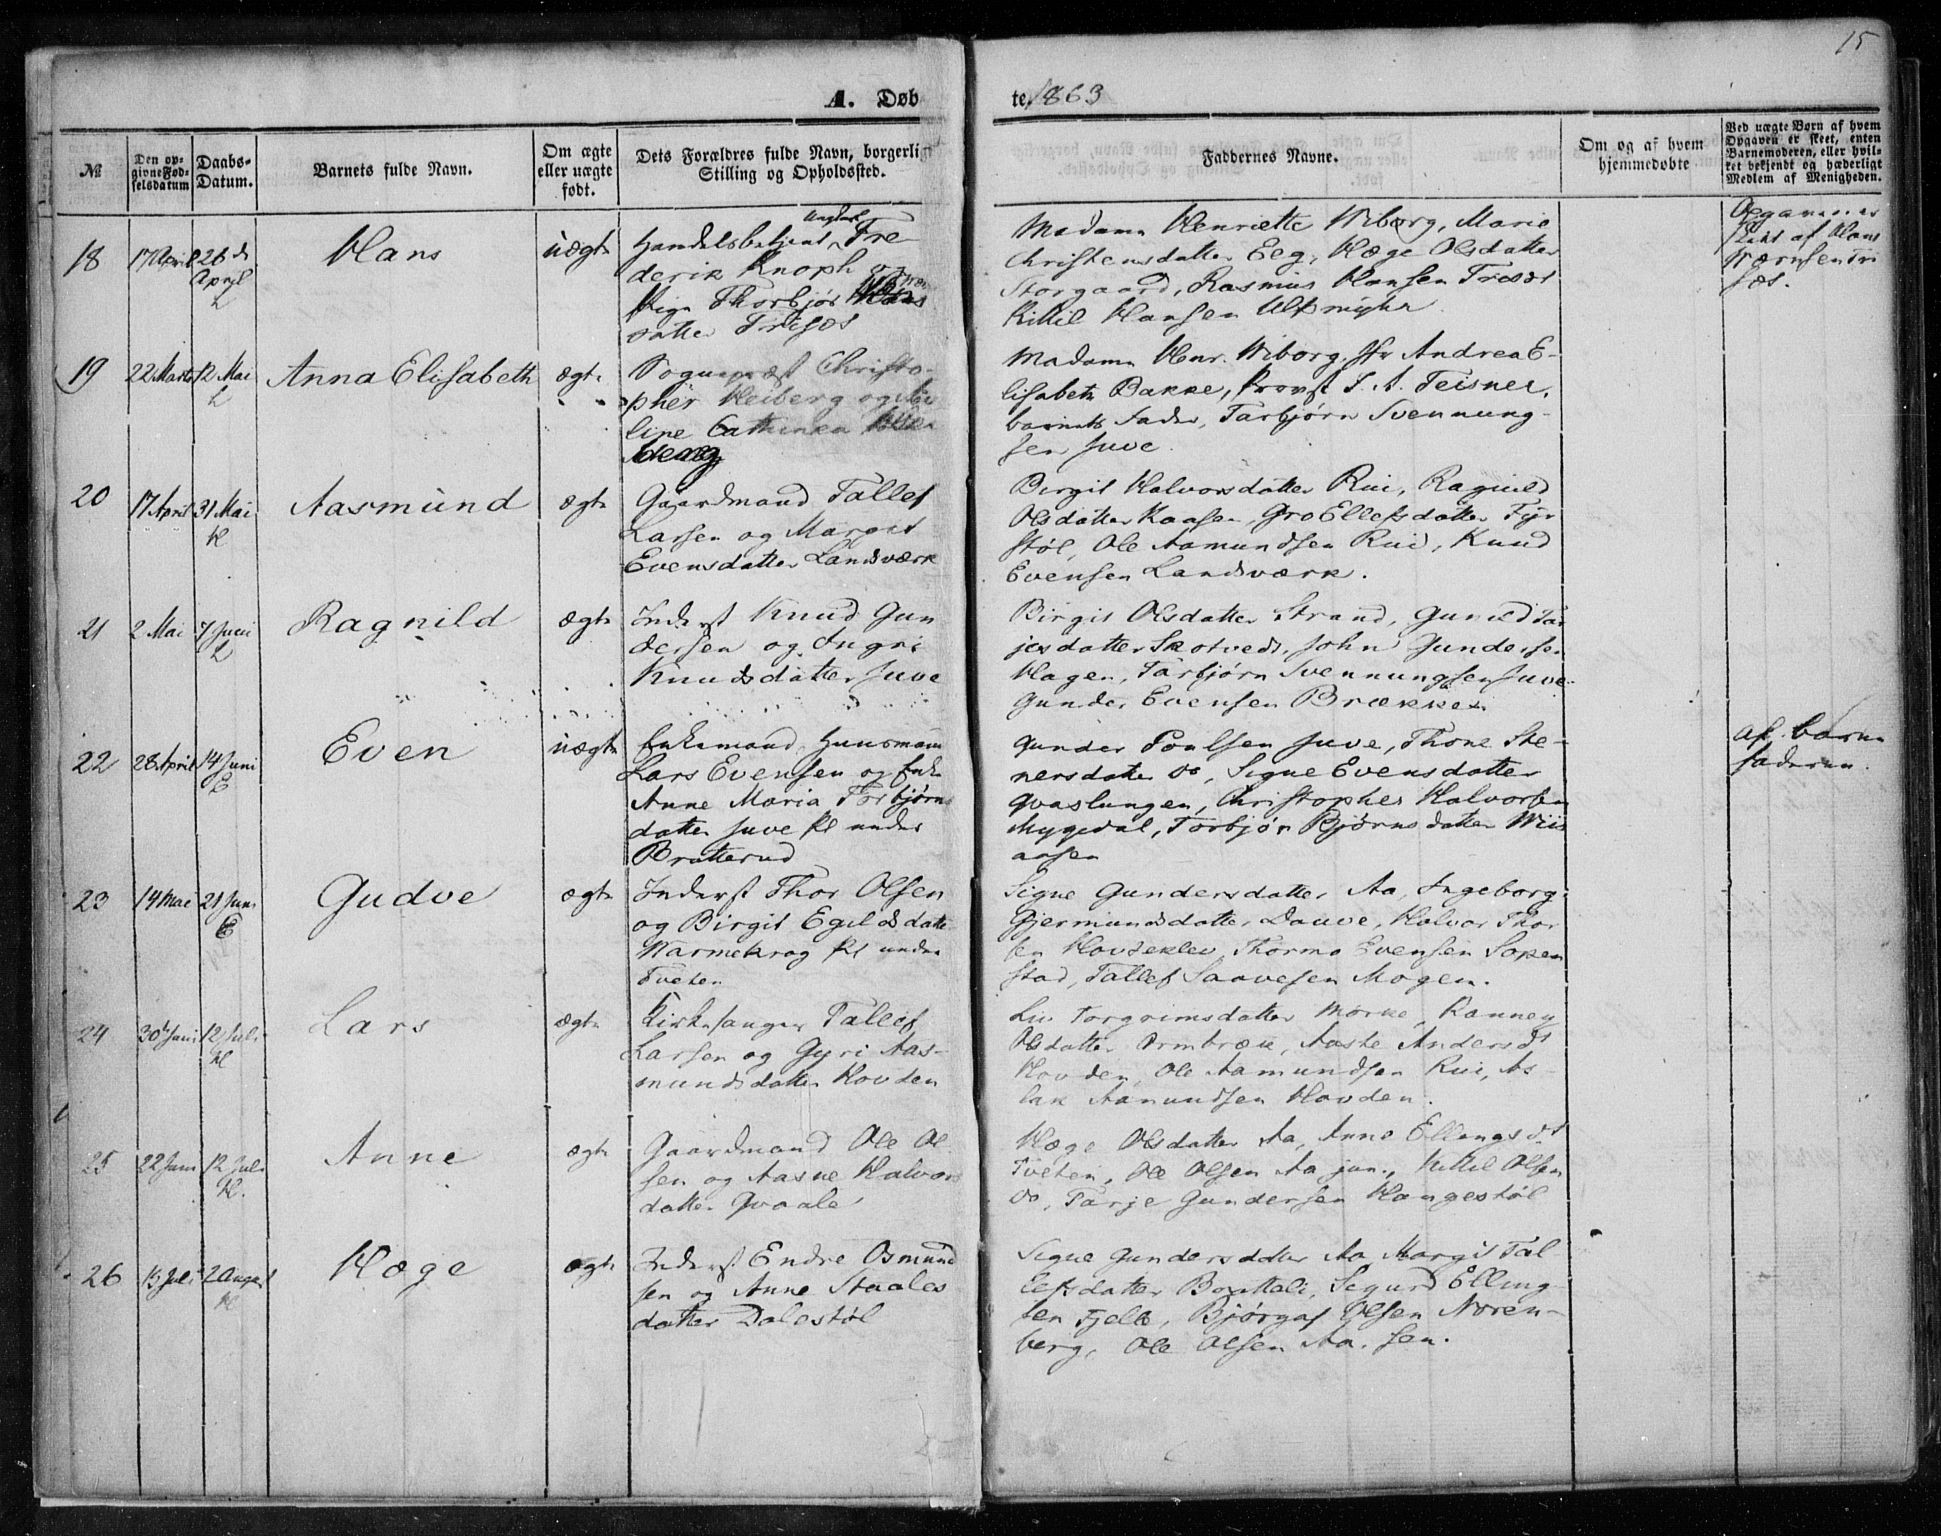 15
A. Døbte 1863
№
Den opgivne Fødselsdatum
Daabs-Datum.
Barnets fulde Navn.
Om ægte eller uægte født.
Dets Forældres fulde Navn, borgerlige Stilling og Opholdssted.
Faddernes Navne.
Om og af hvem hjemmedøbte
Ved uægte Børn af hvem Opgaven er skeet, enten Barnemoderen, eller hvilket bekjendt og hæderligt Medlem af Menigheden.
18
17 April
26 d
April
Hans
uægte
Ungkarl
Handelsbetjent Fre-
derik Knoph og
Pige Thorbjør
datter Trisæt
Madame Henriette Wiborg, Marie
Christensdatter Eeg, Hæge Olsdatter
Storgaard, Rasmus Hansen
Kittil Hansen
af Hans
19
22 Marts
12 Mai
Anna Elisabeth
ægte
Sognepræst Christo-
pher Heiberg og
line Cathinka
Madame Henr. Wiborg, Jfr Andrea E-
lisabeth Bakke, Provst J. A. Teisner,
barnets Fader, Tarbjørn Svennung-
sen Juve
20
17 April
31 Mai
Kl
Aasmund
ægte
Gaardmand Tallef
Larsen og Margit
Evensdatter Landsværk
Birgit Halvorsdatter Rui, Ragnild
Olsdatter Kaasen, Gro Ellefsdatter Fyr-
støl, Ole Aamundsen Rui, Knud
Evensen Landsværk.
21
2 Mai
7 Juni
Ragnild
ægte
Inderst Knud Gun
dersen og Ingri
Knudsdatter Juve
Birgit Olsdatter Strand, Gunild Tar
jesdatter Skotvedt, John Gundersen
Hagen, Tarbjørn Svennungsen Juve
Gunder Evensen Brække
22
28 April
14 Juni
E
Even
uægte
Enkemand, Huusmand
Lars Evensen og Enke
Anne Maria Torbjørns
datter Juve Pl under
Bratterud
Gunder Poulsen Juve, Thone Ste-
nersdatter do, Signe Evensdatter
Qvaslungen, Christopher Halvorsen
Mygedal, Torbjør Bjørnsdatter Wiis
aasen
af barne
faderen.
23
14 Mai
21 Juni
E
Gudve
ægte
Inderst Thor Olsen
og Birgit Egilsdatter
Narmekrag Pl under
Tveten
Signe Gundersdatter Aa, Ingeborg
Gjermundsdatter Dauve, Halvor Thor
sen Hovdeklev Thormo Evensen
stad, Tallef Saavesen Mogen.
24
30 Juni
12 Juli
Kl
Lars
ægte
Kirkesanger Tallef
Larsen og Gyri Aas-
mundsdatter Hovden
Liv Torgrimsdatter Mørke, Ranney
Olsdatter Ormbræk, Aaste Andersdt
Hovden, Ole Aamundsen Rui, As-
lak Aamundsen Hovden.
25
22 Juni
12 Juli
Kl.
Anne
ægte
Gaardmand Ole Ol
sen og Aasne Halvors
datter Qvaale
Hæge Olsdatter Aa, Anne Ellengsdt
Tveten, Ole Olsen Aa jun., Kittil Olsen
do, Tarje Gundersen Haugestøl
26
15 Juli
2 August
Kl
Hæge
ægte
Inderst Endre Osmund
sen og Anne Staales
datter Dalestøl
Signe Gundersdatter Aa, Margit Tal
lefsdatter Brattali, Segurd Elling-
sen Fjelle, Bjørgaf Olsen Noren-
berg, Ole Olsen Aa, sen.